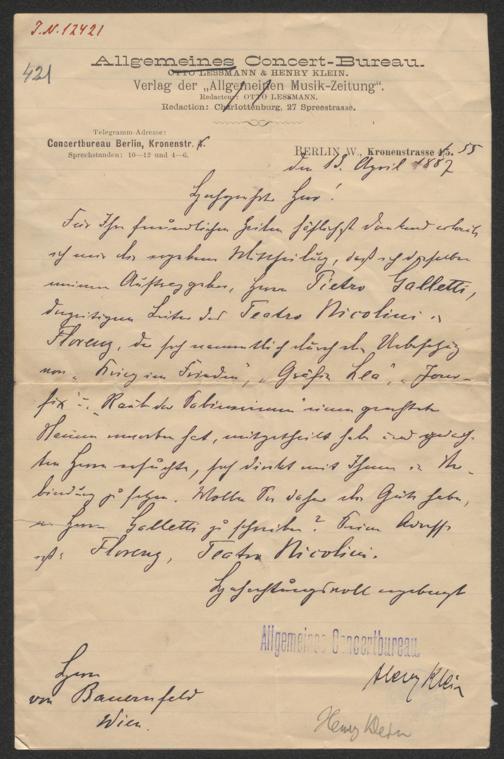 J.N. 12421
421
Allgemeines Concert-Bureau.
OTTO LESSMANN & HENRY KLEIN.
Verlag der „Allgemeinen Musik-Zeitung“.
Redacteur: OTTO LESSMANN.
Redaction: Charlottenburg, 27 Spreestrasse.
Telegramm-Adresse:
Concertbureau Berlin, Kronenstr.
Sprechstunden: 10—12 und 4—6.
BERLIN W., Kronenstrasse 55
den 13. April 1887
Hochgeehrter Herr!
Für Ihre freundlichen Zeilen höflichst dankend erlaube
ich mir die ergebene Mittheilung, daß ich dieselben
meinem Auftraggeber, Herrn Pietro Galletti,
derzeitigen Leiter des Teatro Nicolini in
Florenz, der sich namentlich durch die Uebersetzung
von „Krieg im Frieden“, „Gräfin Lea“, „Jour-
fix“ „Raub der Sabinerinnen“ einen geachteten
Namen erworben hat, mitgetheilt habe und
Herrn ersuchte, sich direkt mit Ihnen in Ver-
bindung zu setzen. Wollen Sie daher die Güte haben,
an Herrn Galletti zu schreiben? Seine Adresse
ist: Florenz, Teatro Nicolini.
Hochachtungsvoll ergebenst
Allgemeines Concertbureau.
Henry Klein
Herrn
von Bauernfeld
Wien.
Henry Klein